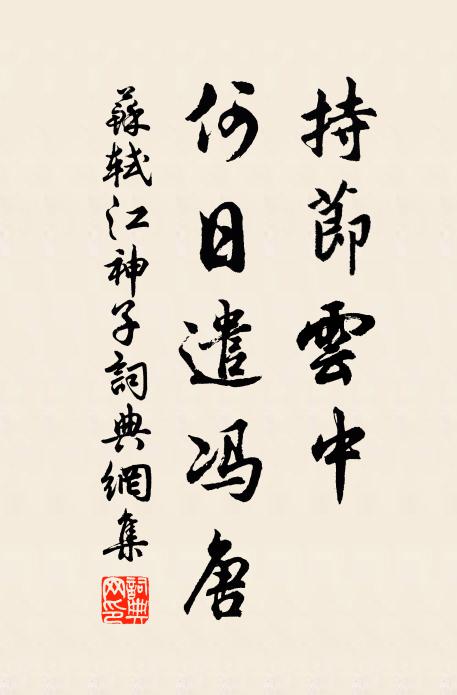 持節雲中
何日遣冯唐
蘇軾江神子詞典網集
詞典
网印